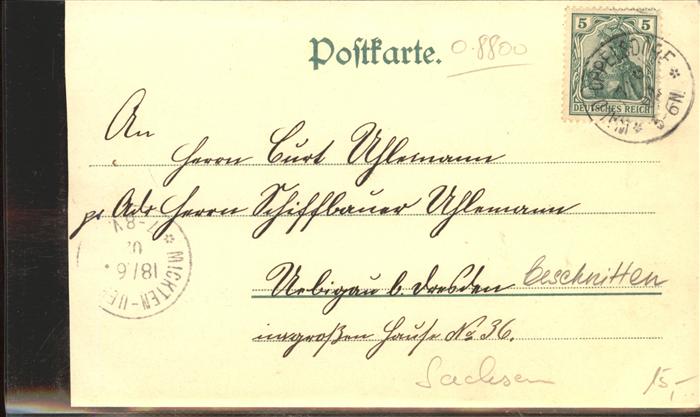 Postkarte.
0.8800
5 5
DEUTSCHES REICH
OPPELSDORF
An
Herrn Curt Uhlemann
pr Adr Herrn Schiffbauer Uhlemann
Uebigau b. Dresden
beschnitten
im großen Hause No 36.
MICKTEN-UE
18/6.
7-8V.
Sachsen
15,-